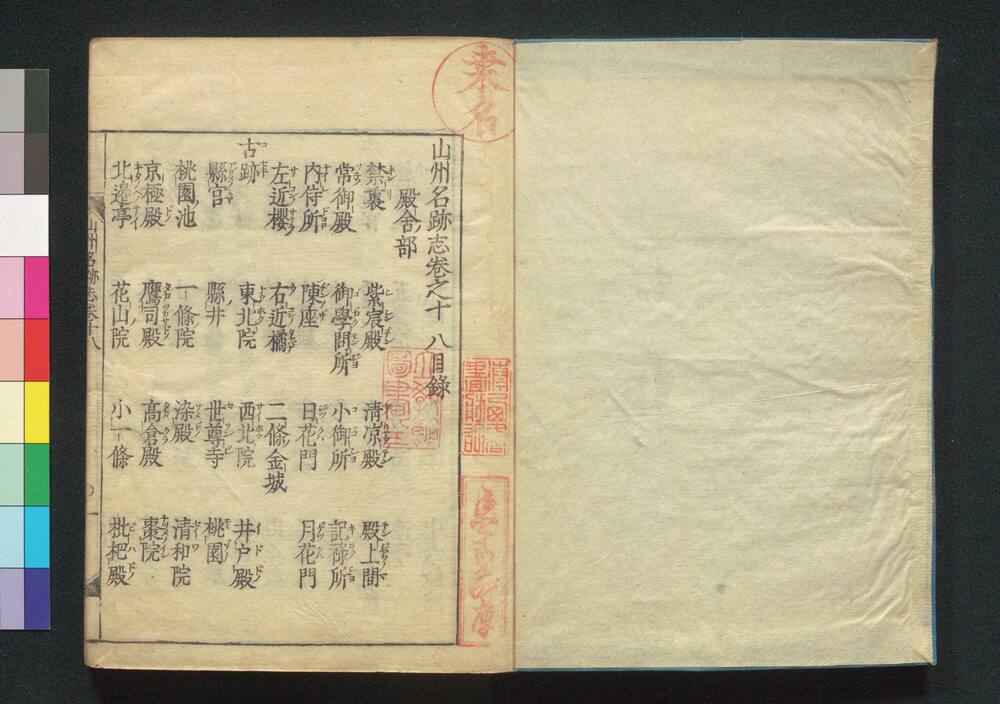 山州名跡志巻之十八目錄
殿舎部
禁裏 紫宸殿 清凉殿 殿上間
常御殿 御學問所 小御所 記祿所
内侍所 陳座 日花門 月花門
左近櫻 右近橘 二條金城
古跡 東北院 西北院 井戸殿
縣宮 縣井 世尊寺 桃園
桃園池 一條院 染殿 清和院
京極殿 鷹司殿 高倉殿 棗院
北邊亭 花山院 小一條 枇杷殿
山州名跡志巻十八
桑名